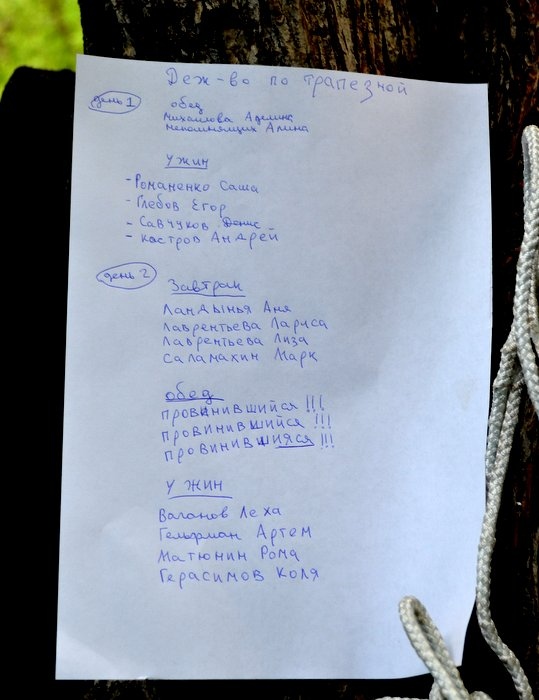 Деж-во по трапезной
день 1
обед
Михайлова Аделина
Непомнящих Алина
Ужин
- Романенко Саша
- Глебов Егор
- Савчуков Денис
- Костров Андрей
день 2
Завтрак
Ландынья Аня
Лаврентьева Лариса
Лаврентьева Лиза
Саламахин Марк
обед
провинившийся !!!
провинившийся !!!
провинившияся !!!
Ужин
Ваганов Леха
Гельфман Артем
Матюнин Рома
Герасимов Коля